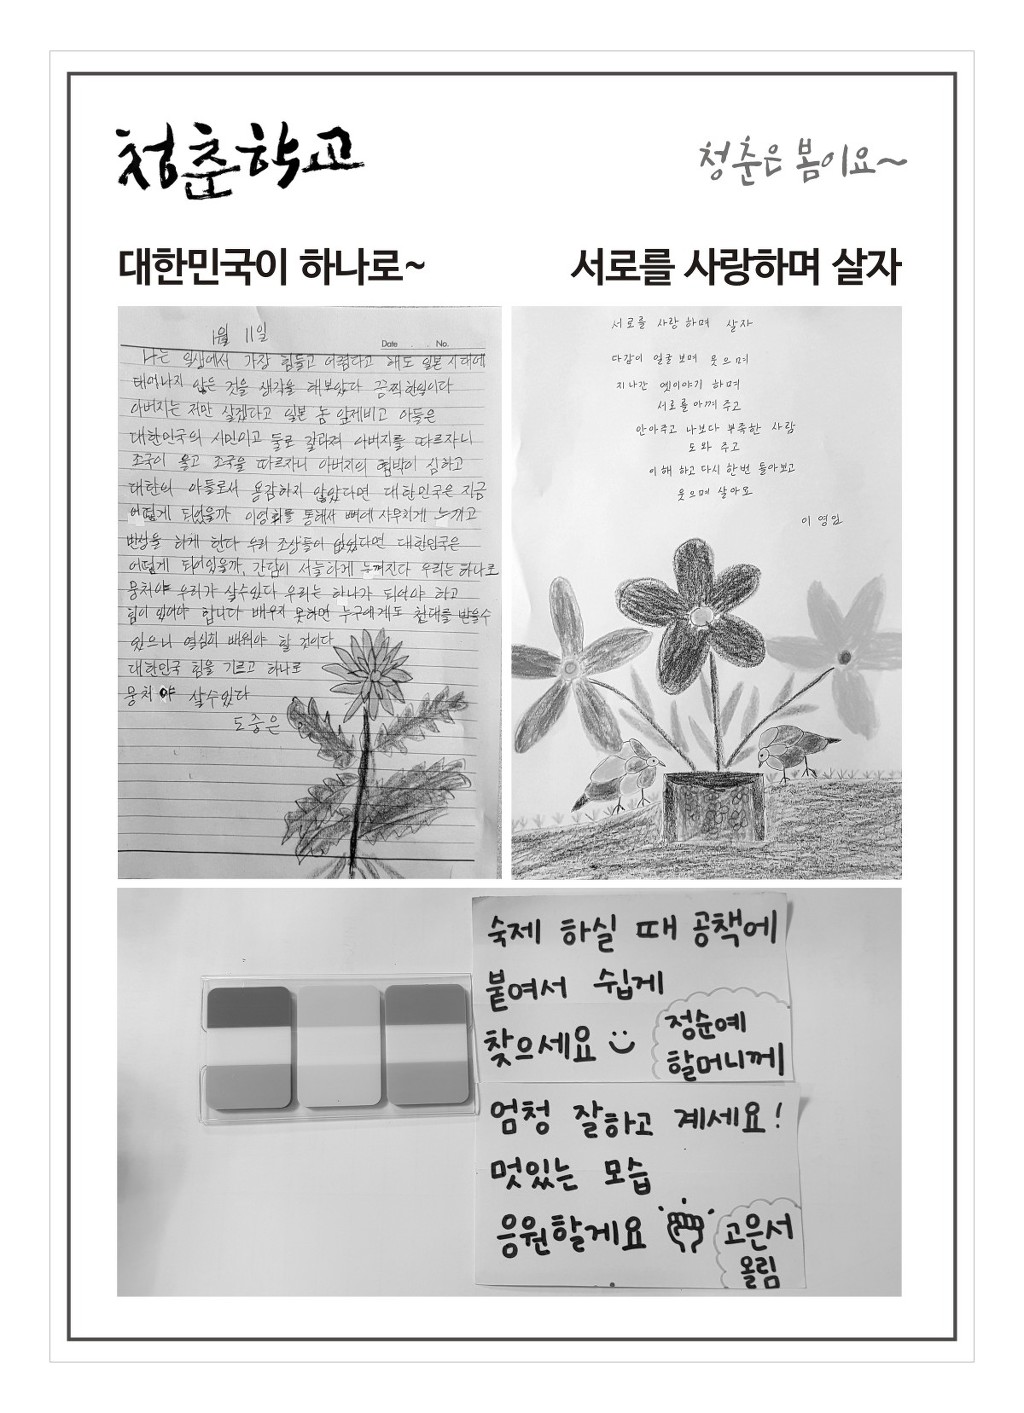 청춘학교
청춘은 봄이요~
대한민국이 하나로~
서로를 사랑하며 살자
1월 11일
Date . . No.
나는 일생에서 가장 힘들고 어렵다고 해도 일본시대에
태어나지 않은 것을 생각을 해보았다 끔찍한일이다
아버지는 저만 살겠다고 일본 놈 앞제비고 아들은
대한민국의 시민이고 둘로 갈라져 아버지를 따르자니
조국이 울고 조국을 따르자니 아버지의 협박이 심하고
대한의 아들로서 용감하지 않았다면 대한민국은 지금
어떻게 되었을까 이영화를 통해서 뼈에 사무치게 느끼고
반성을 하게 한다 우리 조상들이 없었다면 대한민국은
어떻게 되어있을까, 간담이 서늘하게 느껴진다 우리는 하나로
뭉처야 우리가 살수있다 우리는 하나가 되어야 하고
힘이 있어야 합니다 배우지 못하면 누구에게도 천대를 받을수
있으니 열심히 배워야 할 것이다
대한민국 힘을 기르고 하나로
뭉처야 살수있다
도중은
서로를 사랑하며 살자
다같이 얼굴보며 웃으며
지나간 옛이야기 하며
서로를 아껴주고
안아주고 나보다 부족한 사람
도와 주고
이해 하고 다시 한번 돌아보고
웃으며 살아요
이영임
숙제 하실 때 공책에
붙여서 쉽게
찾으세요
정순예
할머니께
엄청 잘하고 계세요!
멋있는 모습
응원할게요
고은서
올림